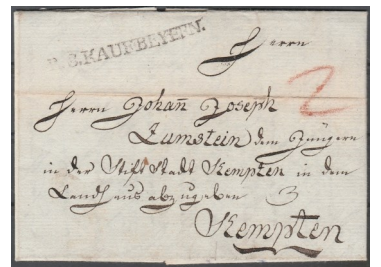 R.S.KAUFBEYERN.
Herrn
2
Herrn Johan̄ Joseph
Zumstein dem Jüngern
in der Stift Stadt Kempten in dem
Landhaus abzugeben
Kempten